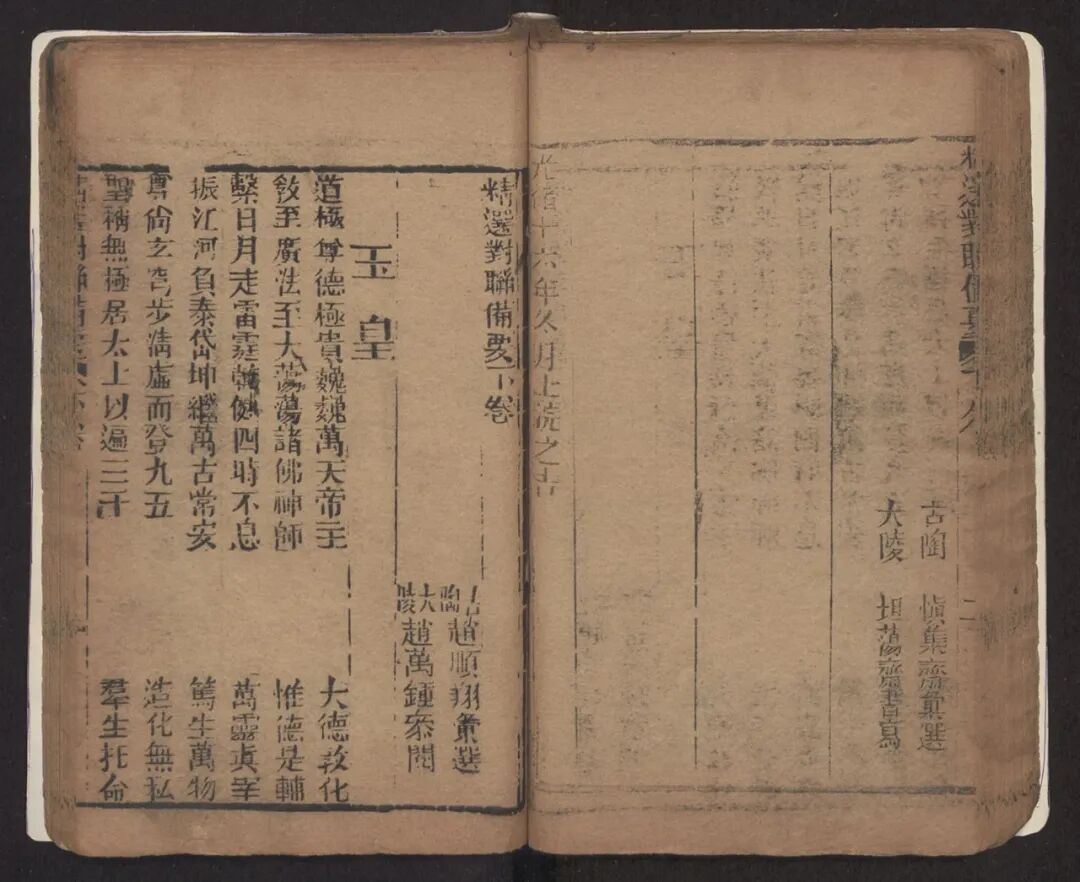 古陶 慎集齋彙選
大陵 坦蕩齋書寫
光緒十六年冬月上浣之吉
精選對聯備要下卷
古陶趙順翔彙選
大陵趙萬鍾叅閱
玉皇
道極尊德極貴巍巍萬天帝主 大德敦化
敎至廣法至大蕩蕩諸佛神師 惟德是輔
繫日月走雷霆乾健四時不息 萬靈真宰
振江河負泰岱坤維萬古常安 篤生萬物
尊尚玄穹步清虛而登九五 造化無私
聖稱無極居太上以遍三千 羣生托命